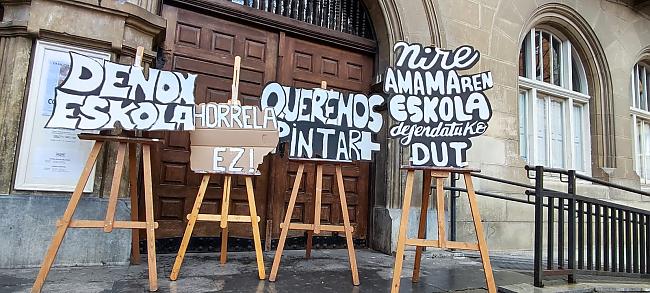 DENOK
ESKOLA
HORRELA
EZ!
QUEREMOS
PINTAR+
Nire
AMAMAREN
ESKOLA
dejendatuko
DUT